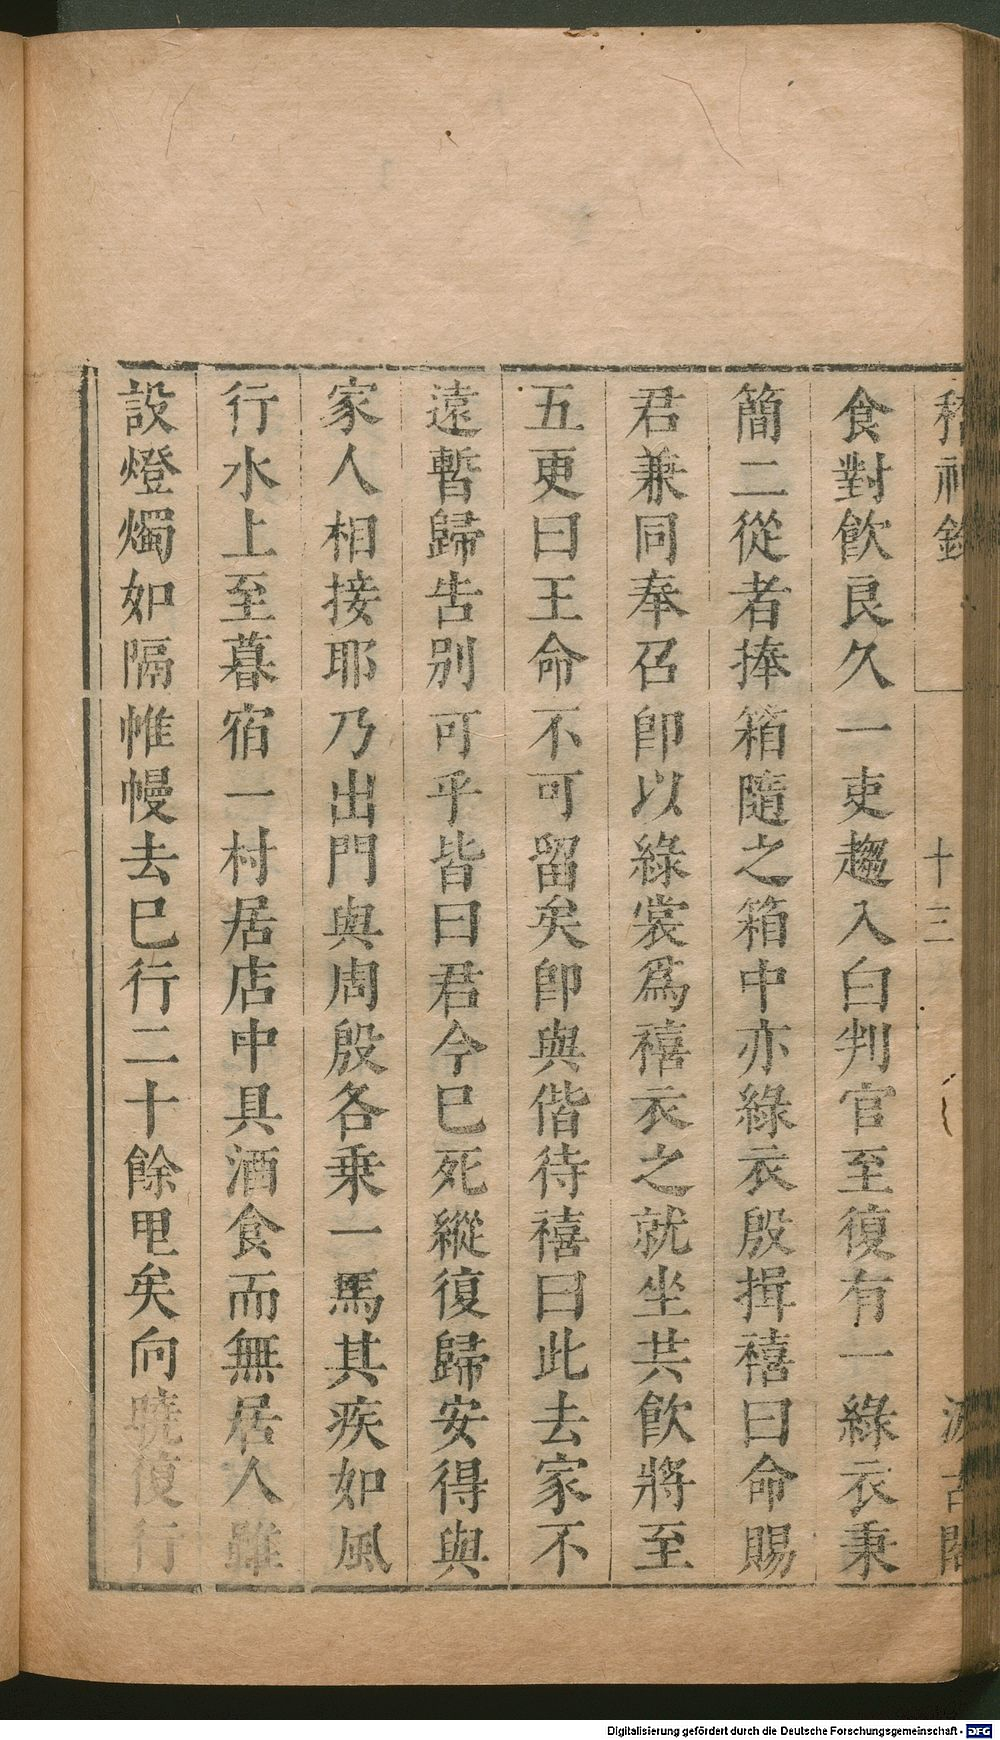 稽神錄
十三
汲古閣
食對飲良久一吏趨入白判官至復有一綠衣秉
簡二從者捧箱隨之箱中亦綠衣殷揖禧曰命賜
君兼同奉召卽以綠裳爲禧衣之就坐共飲將至
五更曰王命不可留矣卽與偕待禧曰此去家不
遠暫歸告別可乎皆曰君今巳死縱復歸安得與
家人相接耶乃出門與周殷各乗一馬其疾如風
行水上至暮宿一村居店中具酒食而無居人雖
設燈燭如隔帷幔去巳行二十餘里矣向曉復行
Digitalisierung gefördert durch die Deutsche Forschungsgemeinschaft - DFG